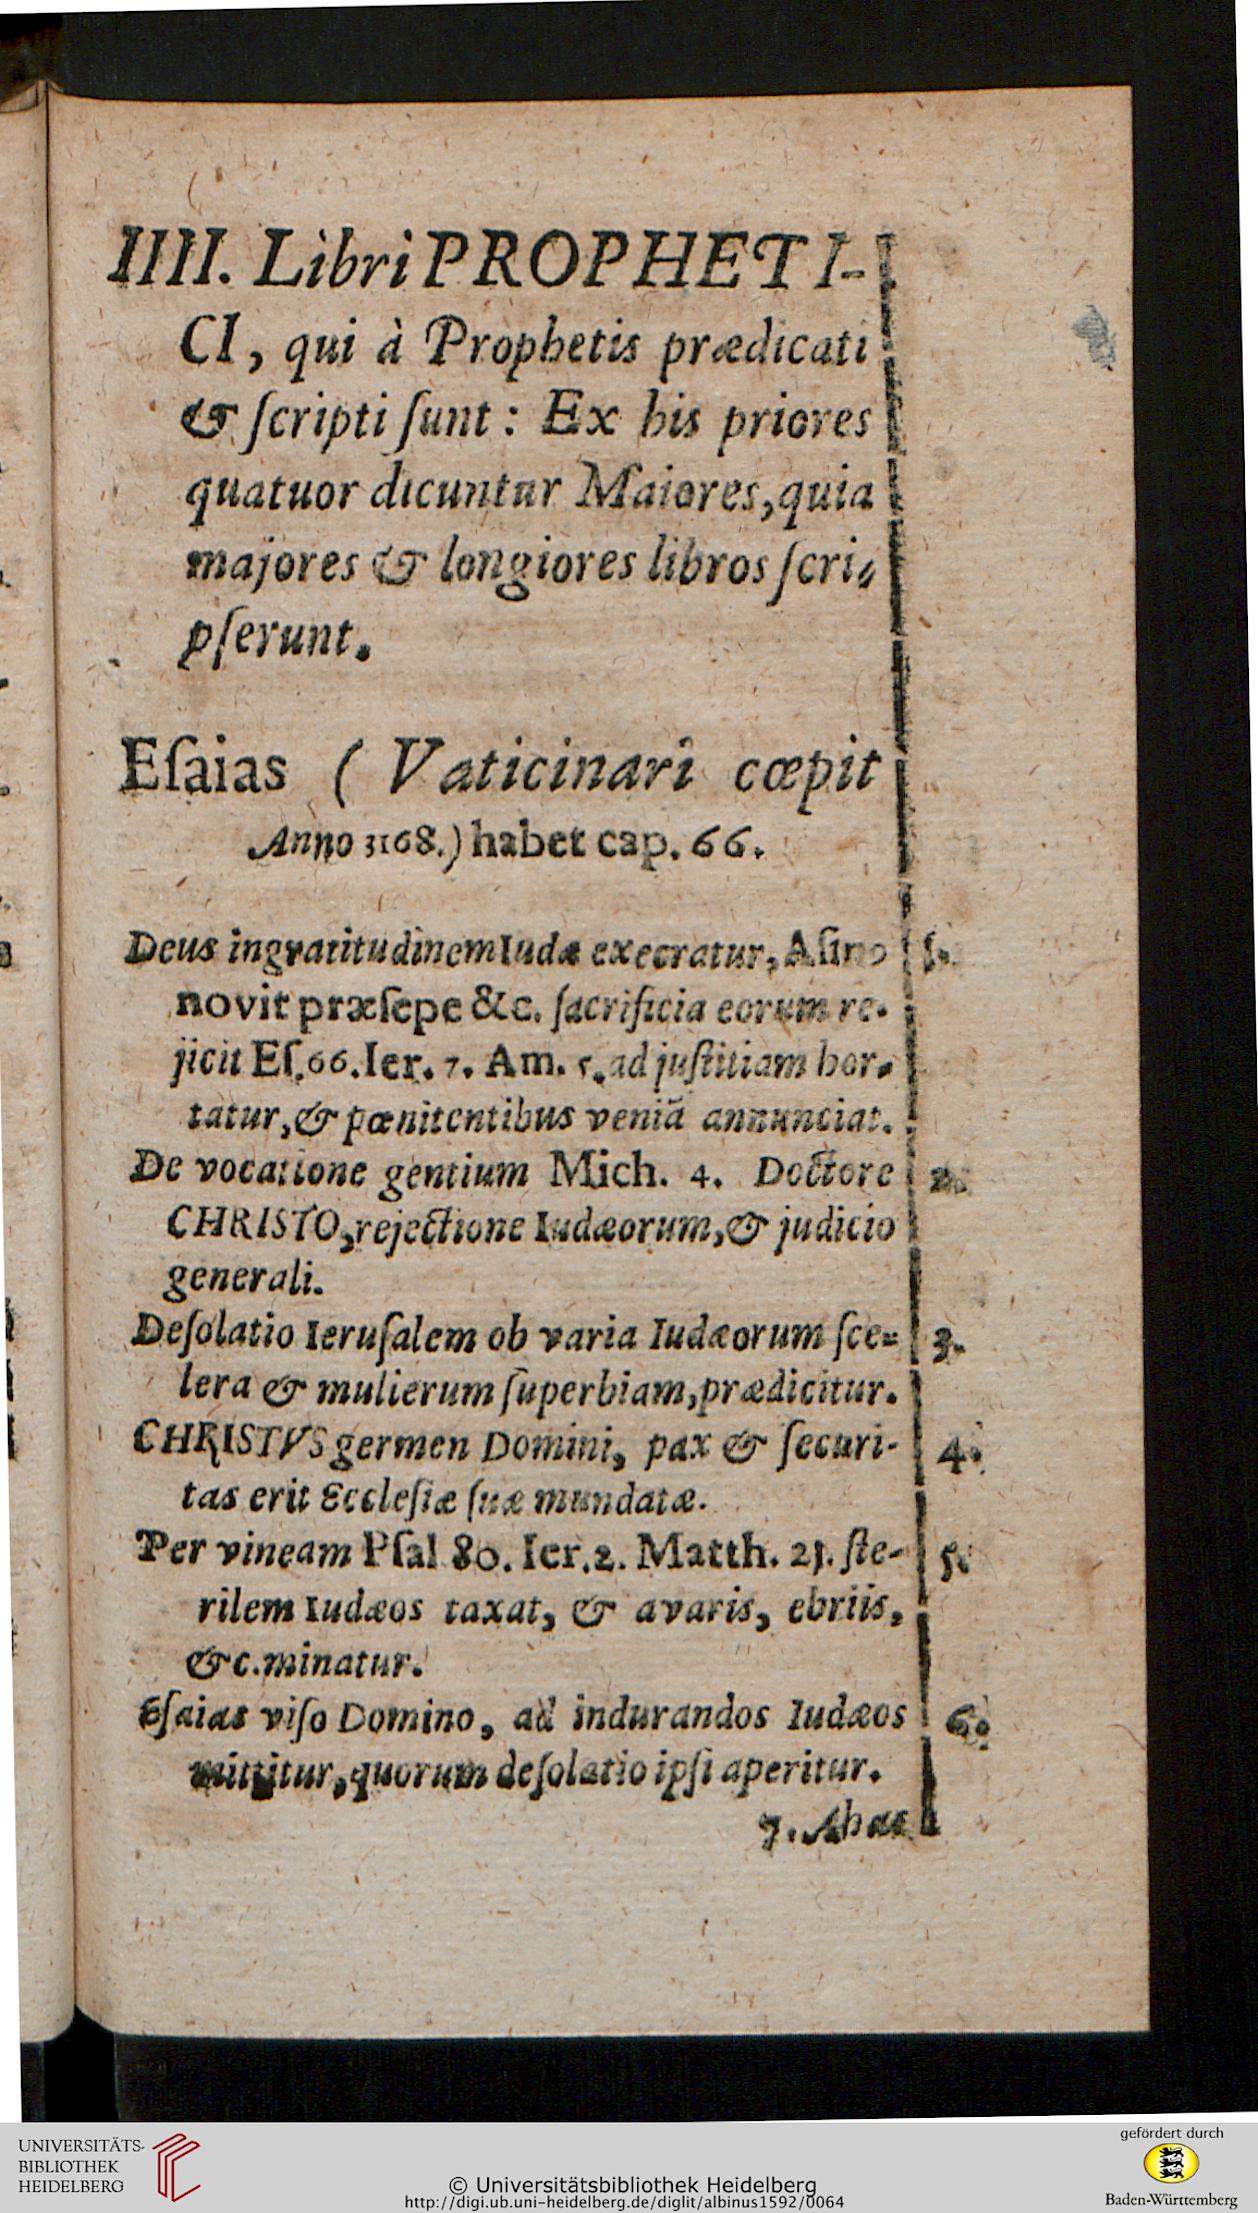 IIII. Libri PROPHETI-
CI, qui à Prophetis prædicati
& ſcripti ſunt: Ex his priores
quatuor dicuntur Maiores, quia
majores & longiores libros ſcri-
pſerunt.
Eſaias (Vaticinari cœpit
Anno 3168.) habet cap. 66.
Deus ingratitudinem Iudæ execratur, Aſino 1.
novit præſepe &c. ſacrificia eorum re-
jicit Eſ. 66. Ier. 7. Am. 5. ad juſtitiam hor-
tatur, & pœnitentibus veniã annunciat.
De vocatione gentium Mich. 4. Doctore 2.
CHRISTO, rejectione Iudæorum, & judicio
generali.
Deſolatio Ieruſalem ob varia Iudæorum ſce- 3.
lera & mulierum ſuperbiam, prædicitur.
CHRISTVS germen Domini, pax & ſecuri- 4.
tas erit Eccleſiæ ſuæ mundatæ.
Per vineam Pſal 80. Ier. 2. Matth. 21. ſte- 5.
rilem Iudæos taxat, & avaris, ebriis,
&c. minatur.
Eſaias viſo Domino, ad indurandos Iudæos 6.
mittitur, quorum deſolatio ipſi aperitur.
7. Ahas
UNIVERSITÄTS-
BIBLIOTHEK
HEIDELBERG
© Universitätsbibliothek Heidelberg
http://digi.ub.uni-heidelberg.de/diglit/albinus1592/0064
gefördert durch
Baden-Württemberg